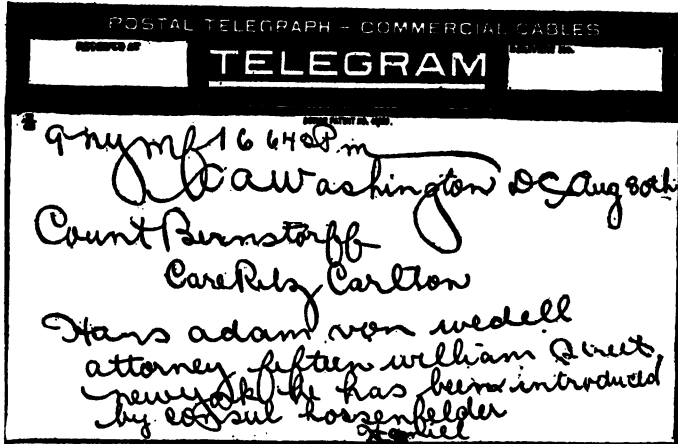 POSTAL TELEGRAPH – COMMERCIAL CABLES
RECEIVED AT
TELEGRAM
DELIVERY No.
9 ny mf 16 640 P m
Washington DC Aug 30th
Count Bernstorff
Care Ritz Carlton
Hans adam von wedell
attorney fifteen william Street
newyork he has been introduced
by consul hossenfelder
Haniel